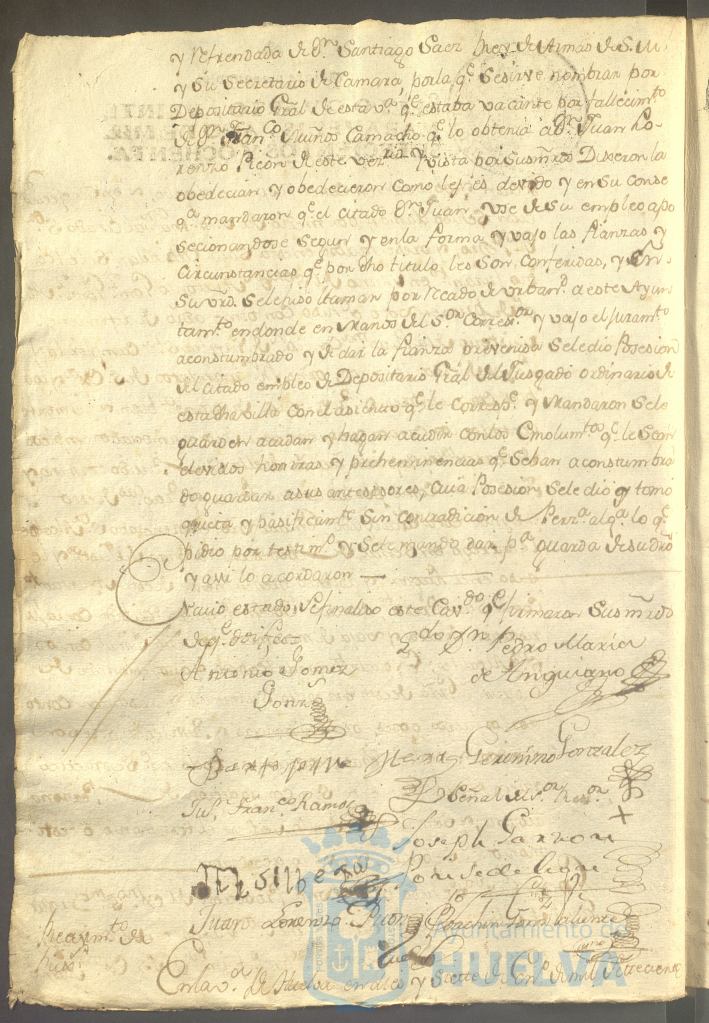 y refrendada de Dn. Santiago Saez Rey de Armas de S. M.
y su secretario de Camara, por la qe. se sirve nombrar por
Depositario Gral de esta va. qe. estaba vacante por fallecimto
de Dn. Franco. Nuños Camacho qe. lo obtenia a Dn. Juan Lo-
renzo Picon de este vez.ria y vista por sus mrds Dixeron la
obedecian y obedecieron como les es devido y en su conse
qa. mandaron qe. el citado Dn. Juan, use de su empleo apo
secionandose segun y en la forma y vajo las fianzas y
circunstancias qe. por dho titulo les son conferidas, y en
su vrd. se le hiso llamar por recado de urban.d a este Ayun
tamto. en donde en manos del sor. Corregor. y vajo el juramto
acostumbrado y de dar la fianza prevenida se le dio Posesion
del citado empleo de Depositario Gral del Jusgado ordinario de
esta dha villa con el asiento qe. le correspe. y mandaron se le
guarden acudan y hagan acudir con los emolumtos qe. le sean
devidos honrras y preheminencias qe. se han acostumbra
do guardar a sus antesesores, cuia Posesion se le dio y tomo
quieta y pasificamte. sin contradicion de perza. alga. lo qe.
pidio por testimo. y se le mando dar pa. guarda de su dro
y assi lo acordaron
En cuio estado se finaliso este Cavdo. qe. firmaron sus mrds
de qe. doi fee
Ldo. Dn. Pedro Maria
de Anguiano
Antonio Gomez
Gonz
Geronimo Gonzalez
Señal del sor. Rexor.
+
Juo. Franco. Ramos
Joseph Garzon
Ponse de Leon
Juan Lorenzo Picon
Joachin Garcia Valiente
Recevimto. de
En la va. de Huelva en dies y siette de Eno. de mil settecient
Ayuntamiento de
HUELVA